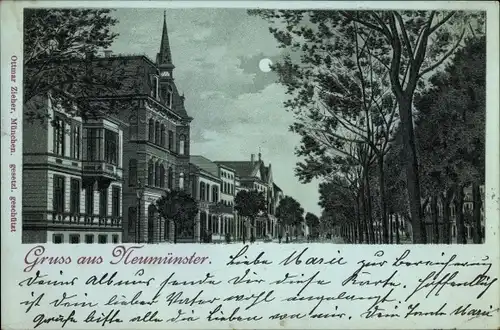 Ottmar Zieher, München. gesetzl. geschützt
Gruss aus Neumünster.
Liebe Marie zur Bereicherung
Deines Albums sende Dir diese Karte. Hoffentlich
ist dein lieber Vater wohl angelangt.
Grüße bitte alle die Lieben von mir. Dein Tante Marie